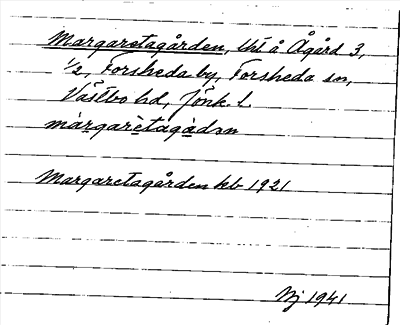 Margaretagården, lht å Ågård 3,
1/2, Forsheda by, Forsheda sn,
Västbo hd, Jönk. l.
màrgarètagàdən
Margaretagården kb 1921
Nj 1941